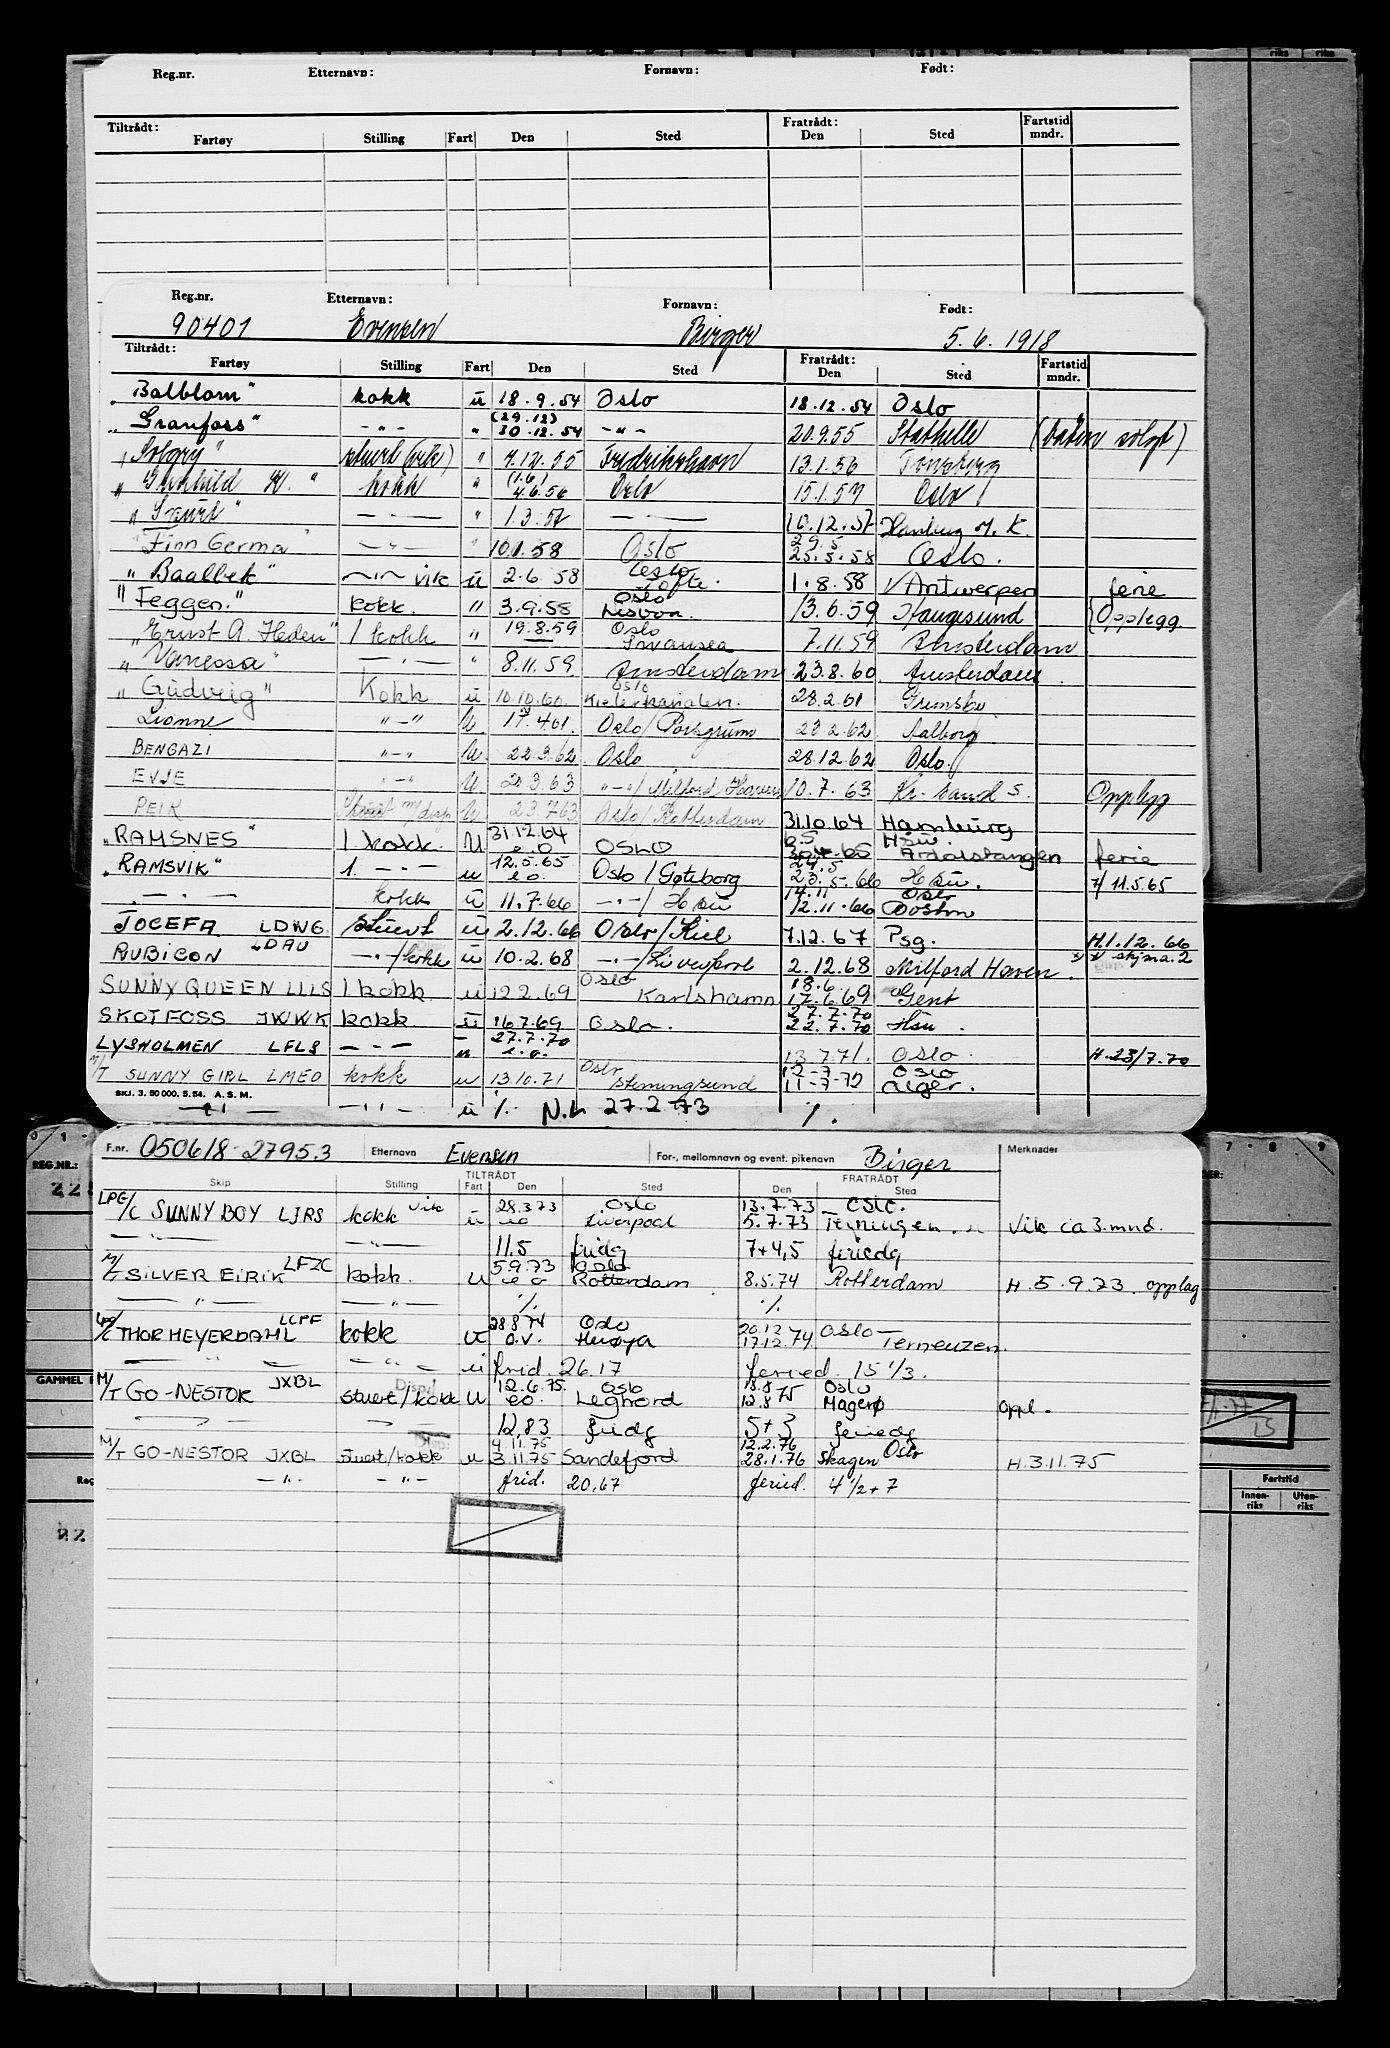 Reg.nr. Etternavn: Fornavn: Født:
Tiltrådt: Fratrådt: Fartstid
Fartøy Stilling Fart Den Sted Den Sted mndr.
Reg.nr. Etternavn: Fornavn: Født:
90401 Evensen Birger 5.6.1918
Tiltrådt: Fratrådt: Fartstid
Fartøy Stilling Fart Den Sted Den Sted mndr.
"Balblom" kokk u 18.9.54 Oslo 18.12.54 Oslo
(29.12)
"Granfoss" -"- " 30.12.54 -"- 20.9.55 Stathelle (båten solgt)
"Solgry" stuert (vik) " 7.12.55 Fredrikshavn 13.1.56 Tønsberg
(1.6)
"Gunhild " kokk " 4.6.56 Oslo 15.1.57 Oslo
"Snurt" -"- " 1.3.57 -"- 10.12.57 Hamburg
29.5
Finn Germa -"- " 10.1.58 Oslo 25.5.58 Oslo.
Oslo
"Baalbek" -"- vik u 2.6.58 Tofte. 1.8.58 Antwerpen ferie
Oslo
"Teggen." kokk. " 3.9.58 Lisboa 13.6.59 Haugesund Opplegg.
Oslo
"Ernst A. Heden" 1 kokk " 19.8.59 Swansea 7.11.59 Amsterdam
"Vanessa" -"- " 8.11.59. Amsterdam 23.8.60 Amsterdam
Oslo
"Gudveig" Kokk u 10.10.60. Kielerkanalen. 28.2.61 Grimsby
Lionne "-" u 17.4.61. Oslo/Porsgrunn 23.2.62 Aalborg
BENGAZI "-" u 22.3.62 Oslo 28.12.62 Oslo
EVJE "-" u 20.3.63 "-"/Milford Haven 10.7.63 Kr.sand S. Opplegg
PEIK Stuert m/disp u 23.7.63 Oslo/Rotterdam 31.10.64 Hamburg
6.5 HSU
"RAMSNES" 1 kokk. u 31.12.64 e.o OSLO 30.4.65 Årdalstangen ferie
24.5
"RAMSVIK" 1. -"- u 12.5.65 e.o. Oslo/Gøteborg 23.5.66 Hsu. 7/11.5.65
14.11 Oslo
-"- kokk u 11.7.66 -"-/Hsu 12.11.66 Boston
JOCEFA LDWG stuert u 2.12.66 Oslo/Kiel 7.12.67 Psg. H.1.12.66
RUBICON LDAU -"-/kokk u 10.2.68 -"-/Liverpool 2.12.68 Milford Haven.
Oslo 18.6.
SUNNY QUEEN LLLS 1 kokk u 12.2.69 Karlshamn 17.6.69 Gent
27.7.70
SKOTFOSS JWWK kokk u 16.7.69 Oslo. 22.7.70 Hsu.
27.7.70
LYSHOLMEN LFLS -"- u e.o. 13.7.71. Oslo H.23/7.70
Oslo 12-7-72 Oslo
M/T SUNNY GIRL LMEO kokk u 13.10.71 Stenungsund 11-7-72 Alger.
SKJ. 3. 50 000. 5. 54. A. S. M.
-"- -"- u %. N.L 27.2.73 %.
F.nr. 050618-27953 Etternavn Evensen For-, mellomnavn og event. pikenavn Birger Merknader
TILTRÅDT FRATRÅDT
Skip Stilling Fart Den Sted Den Sted
vik 28.3.73 Oslo 13.7.73 OSLO.
LPG/C SUNNY BOY LJRS kokk u eo Liverpool 5.7.73 Vik ca 3.mnd.
-"- -"- 11.5 fridg 7+4,5 feriedg
LFZC 5.9.73 Oslo
M/T SILVER EIRIK kokk. u e o Rotterdam 8.5.74 Rotterdam H. 5.9.73. opplag
-"- -"- %. %.
LCPF 28 8 74 Oslo 20.12 Oslo
LPG/C THOR HEYERDAHL kokk u o.v. Herøya 17.12.74 Terneuzen.
-"- -"- u frid. 26.17 feried 15 1/3.
JXBL Disp. 12.6.75. Oslo 18.8 Oslo
M/T GO-NESTOR stuert/kokk u eo. Leghord 12.8 75 Magerø oppl.
-"- -"- 12,83 fridg 5+3 feriedg
Disp. 4.11.75 12.2.76 Oslo
M/T GO-NESTOR JXBL stuert/kokk u 3.11.75 Sandefjord 28.1.76 Skagen H.3.11.75
-"- -"- frid. 20,67 feried. 4 1/2 + 7
REG.NR.:
GAMMEL
Fartstid
Innen-riks Uten-riks